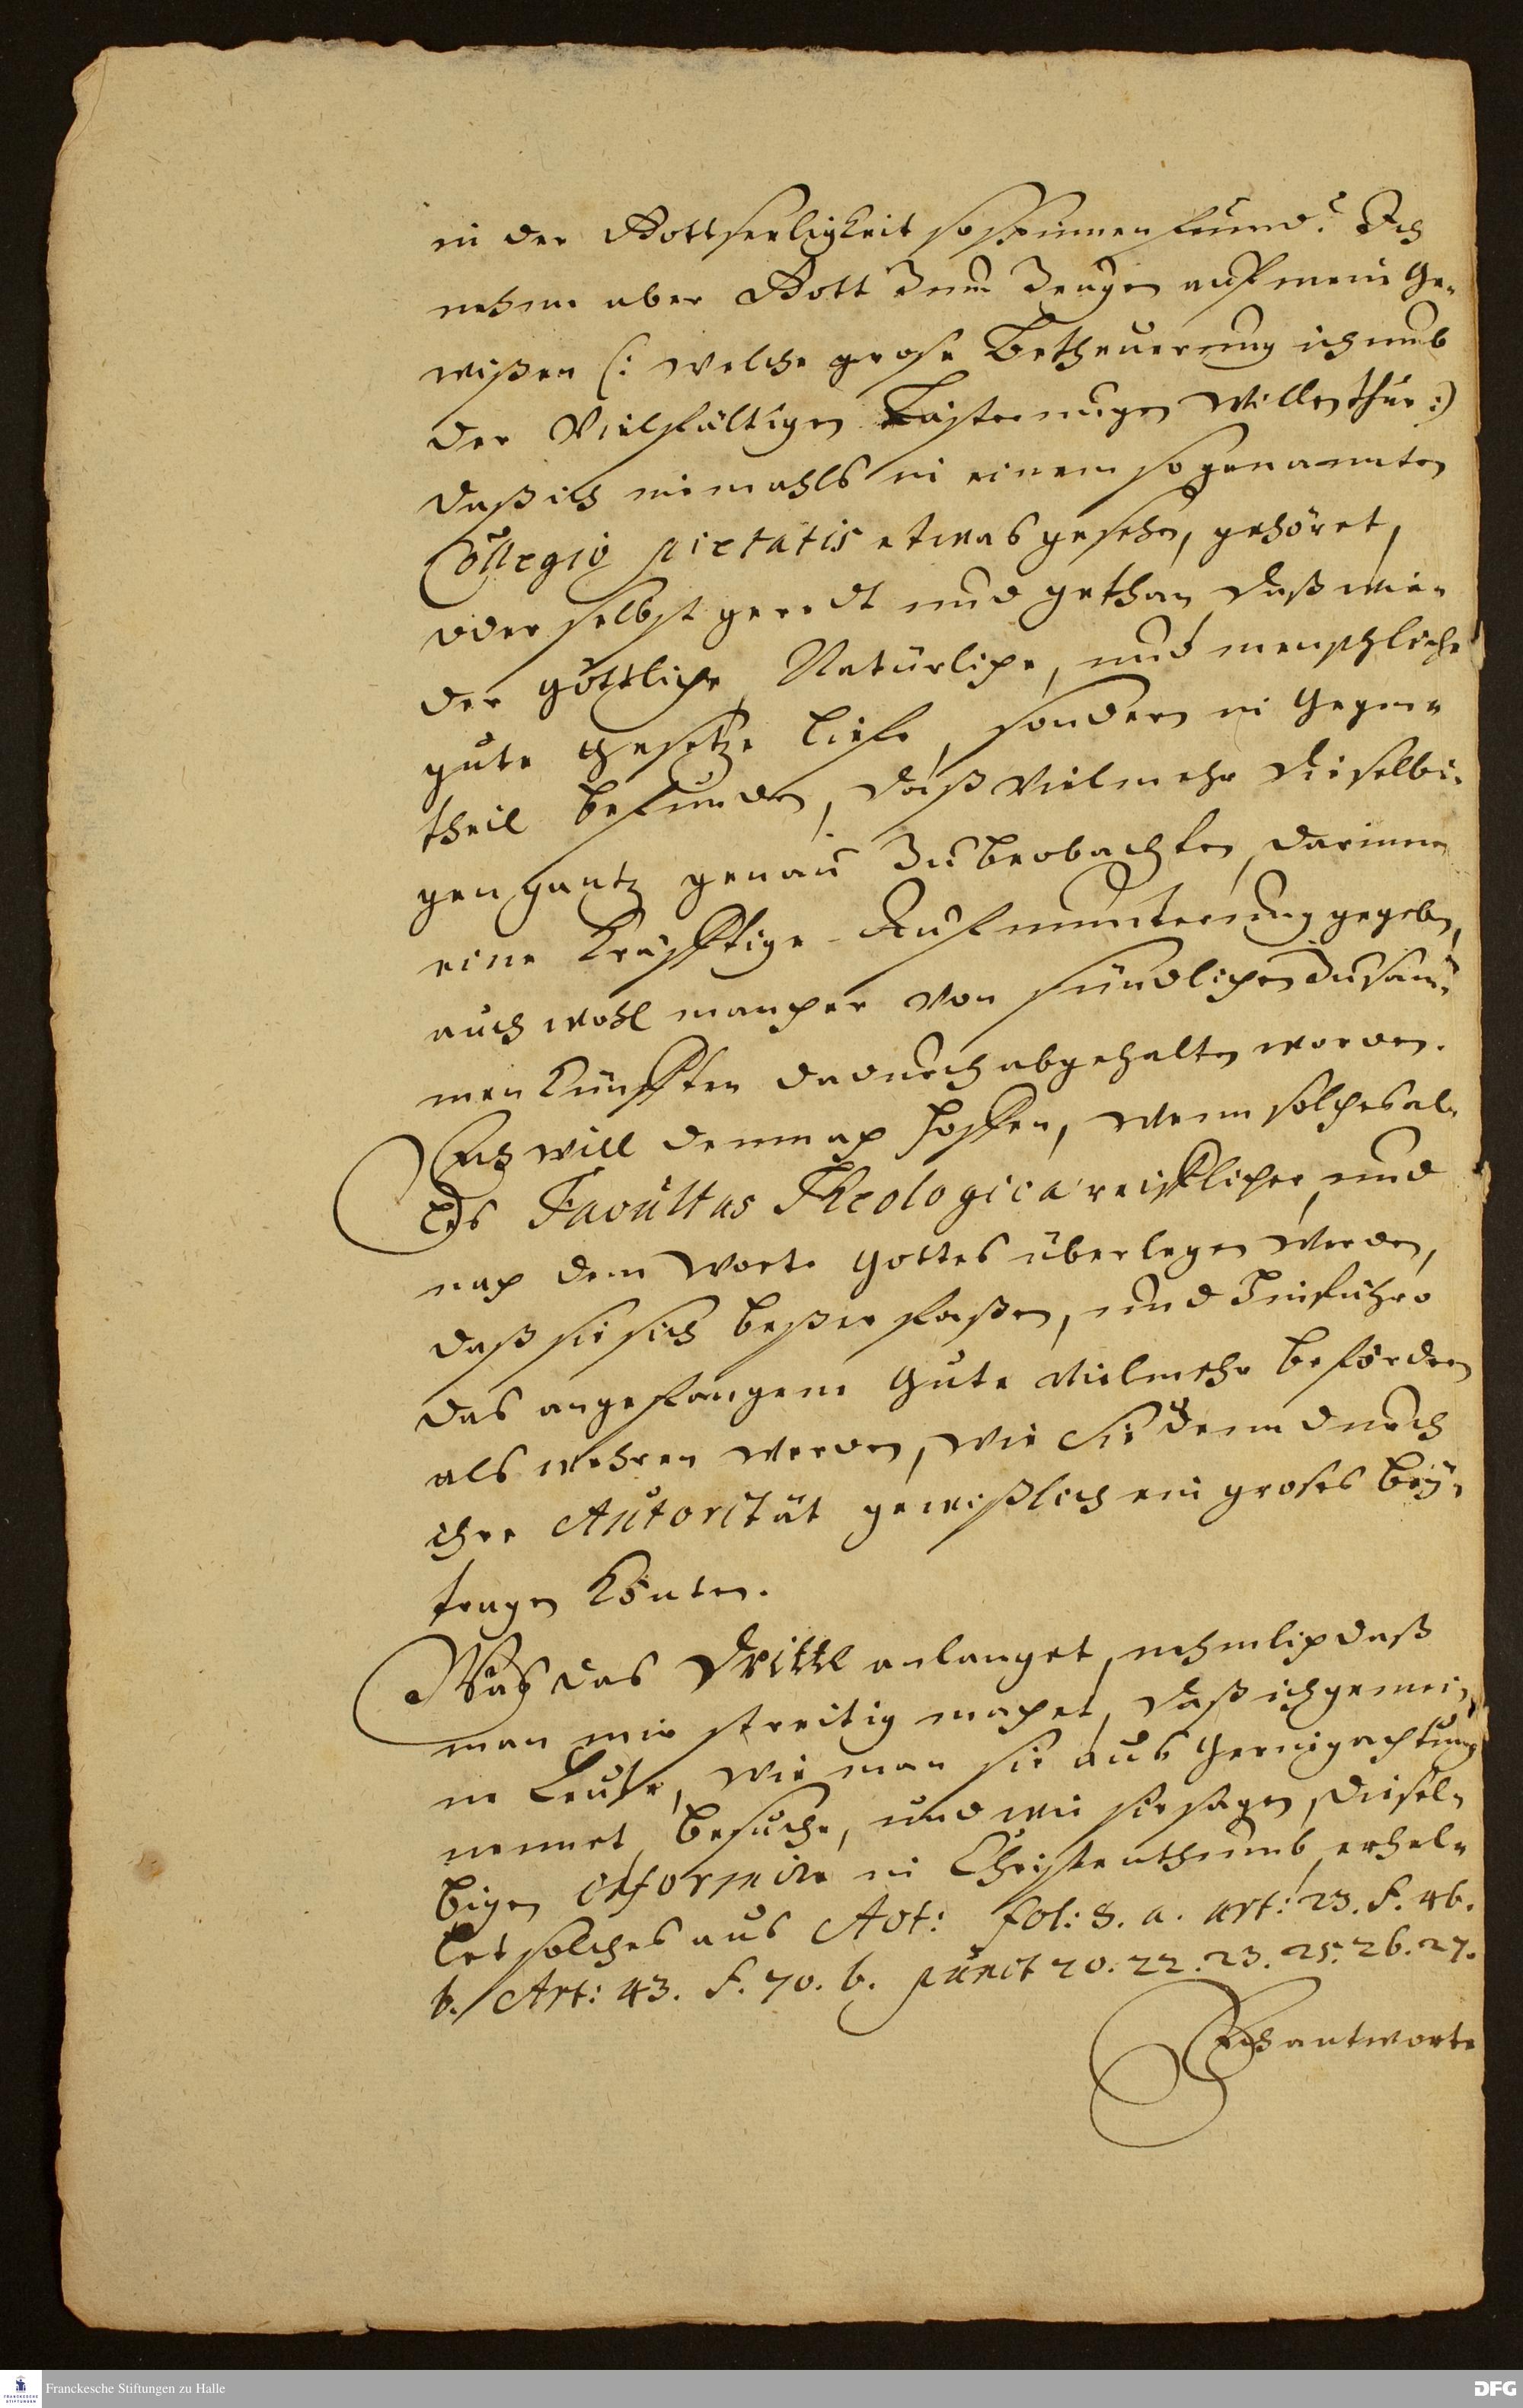 in der Gottseeligkeit so spinnen feind? Ich
nehme aber Gott zum Zeugen auf meine Ge-
wißen (: welche große Betheuerung ich umb
der Vielfältigen Lästerungen willen thue :)
daß ich niemahls in einem so genannten
Collegio pietatis etwas gesehen, gehöret,
oder selbst geredt und gethan, daß wie-
der göttliche, Natürliche, und menschliche
gute Gesetze liefe, sondern in Gegen-
theil befunden, daß vielmehr dieselbi-
gen gantz genau zu beobachten, darinnen
eine kräfftige Aufmunterung gegeben,
auch wohl mancher von sündlichen Zusam-
menkünfften dadurch abgehalten worden.
Ich will demnach hoffen, wenn solches al-
les Facultas Theologica reifflicher, und
nach dem Worte Gottes überlegen werden,
daß sie sich beßer faßen, und hinführo
das angefangene Gute vielmehr befördern
als wehren werden, wie Sie denn durch
ihre Autorität gewißlich ein großes bey-
tragen könten.
Was das Dritte anlanget, nehmlich daß
man mir streitig machet, daß ich gemei-
ne Leute, wie man sie aus Geringachtung
nennet, besuche, und wie sie sagen, diesel-
bigen informire in Christenthumb, erhel-
let solches aus Act: fol: 8. a. art: 23. f. 46.
b. Art: 43. f. 70. b. punct 20. 22. 23. 25. 26. 27.
Ich antworte
Franckesche Stiftungen zu Halle
DFG